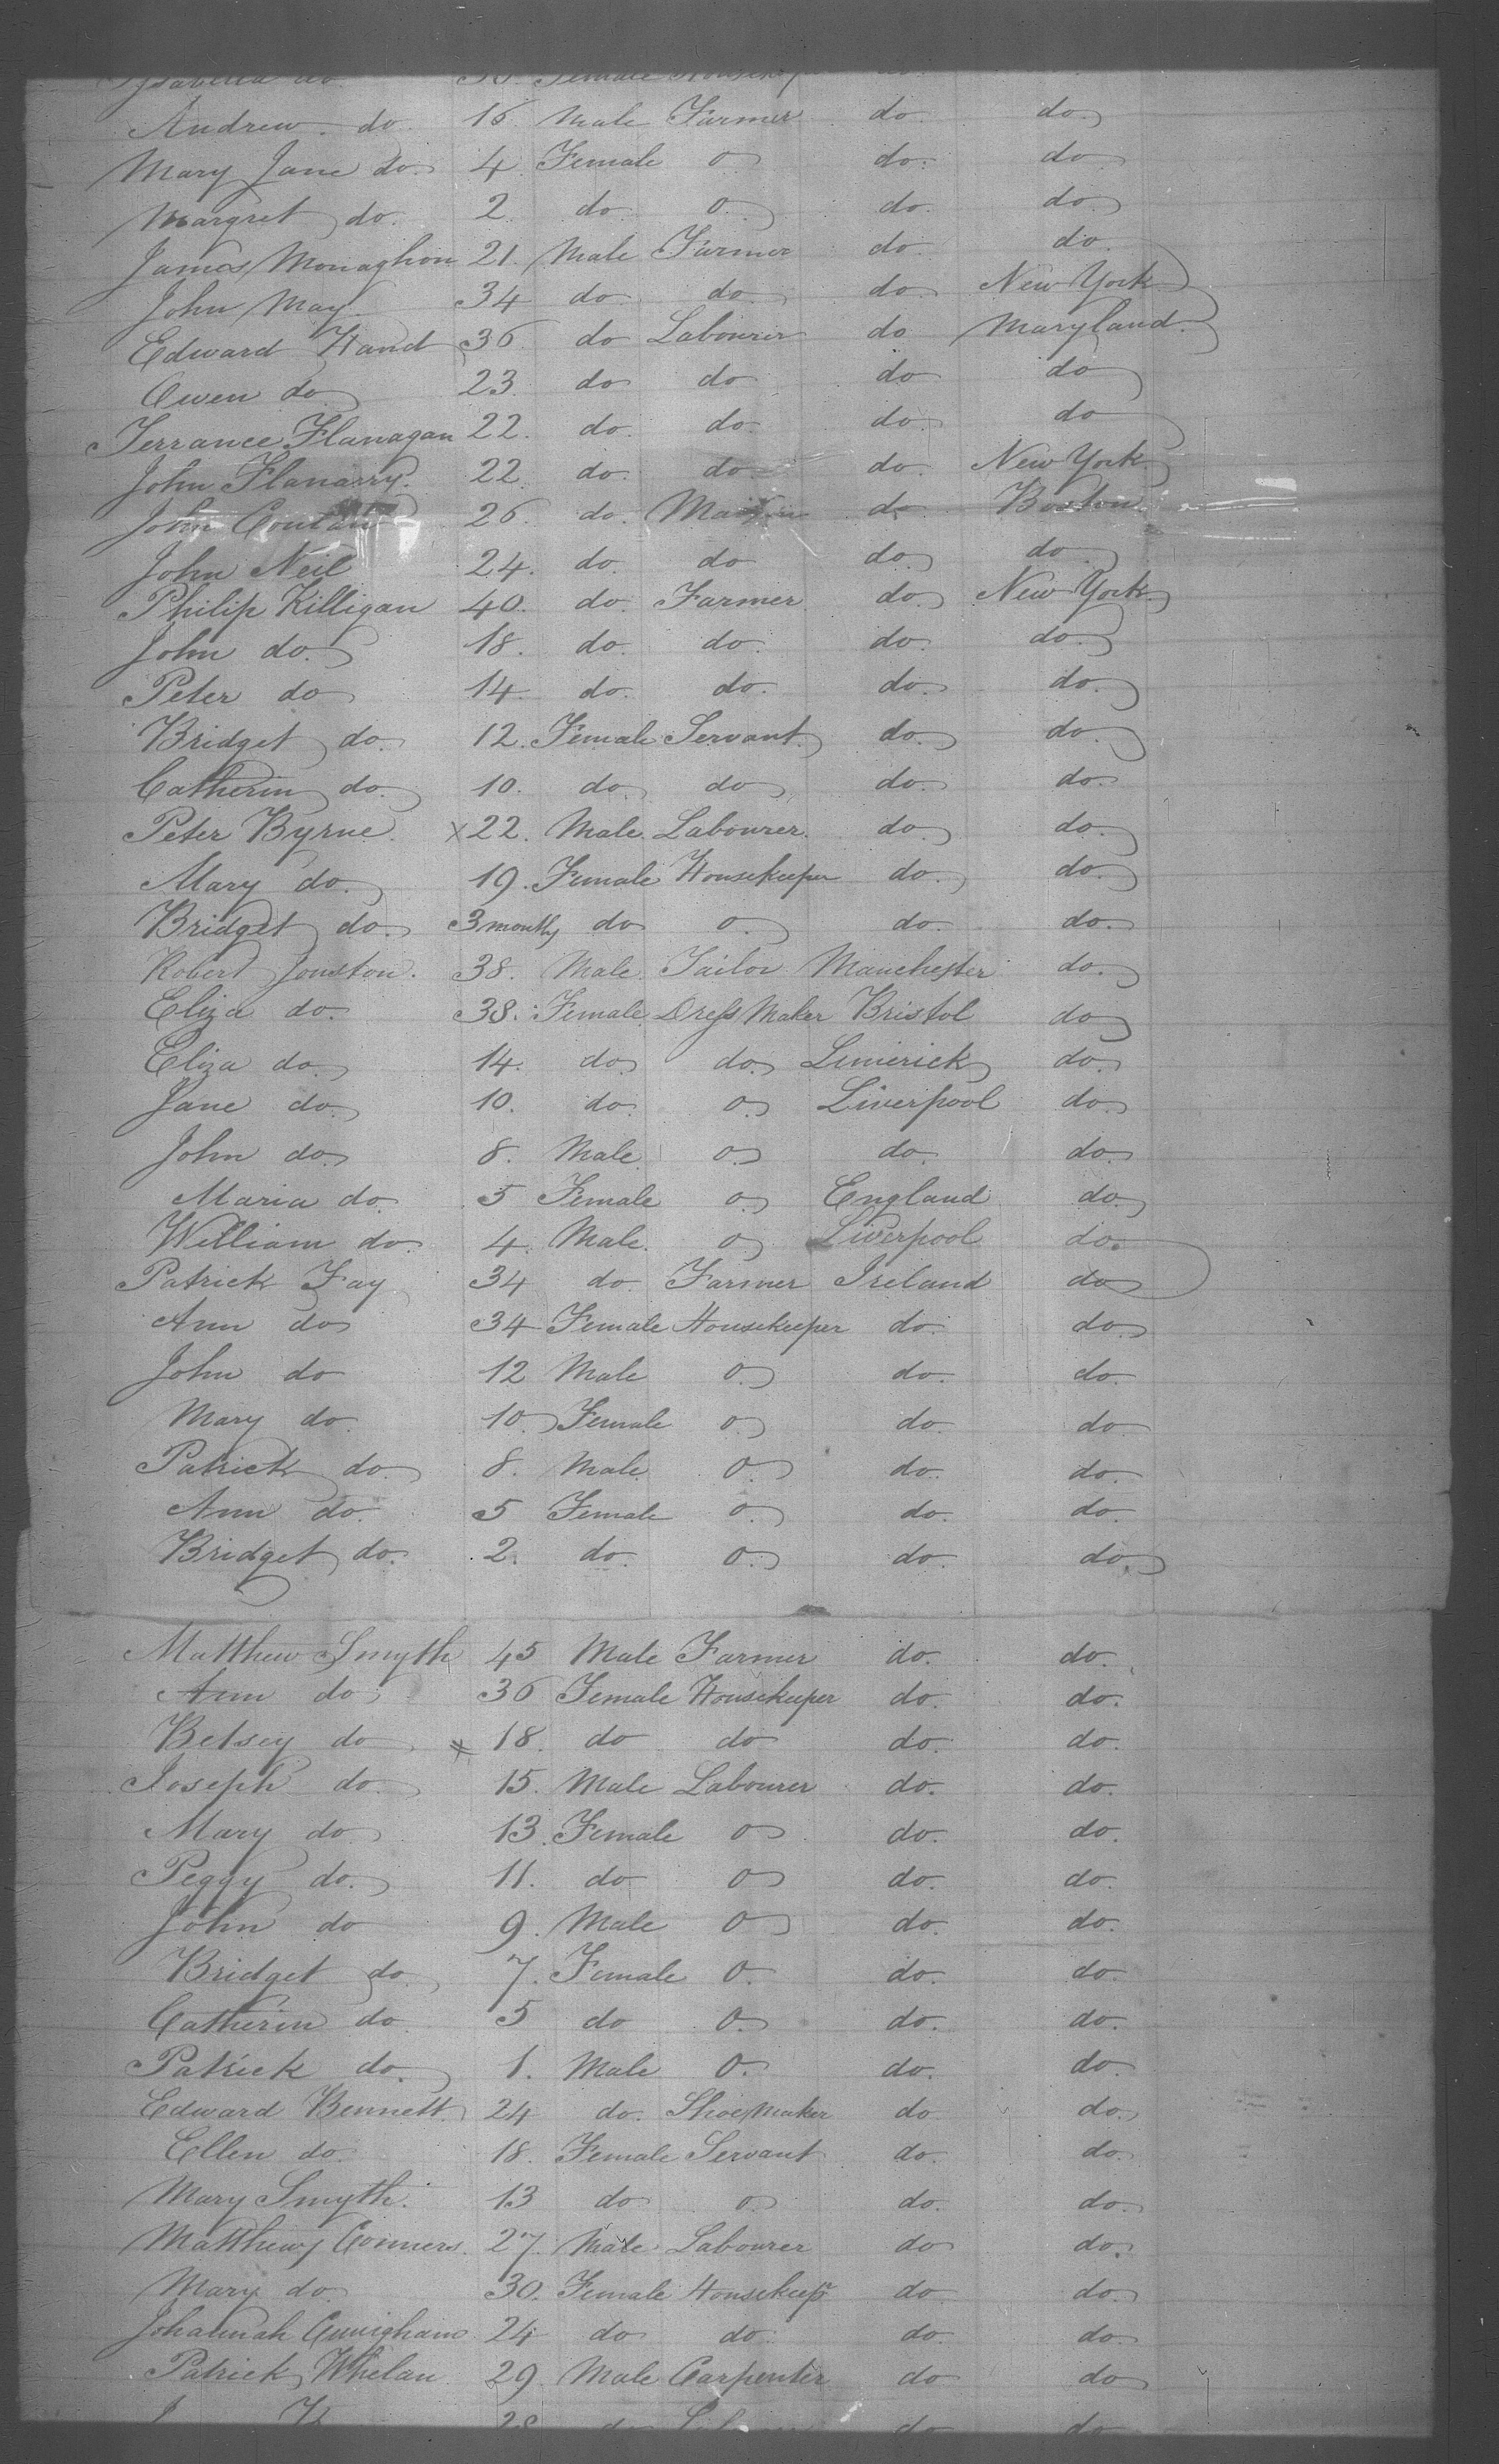 Isabella do 36 Female Housekeeper do
Andrew do. 16 Male Farmer do. do.
Mary Jane do. 4 Female o do. do
Margret do. 2 do. o. do. do.
James Monaghon 21. Male Farmer do. do.
John May. 34 do do. do. New York
Edward Hand 36. do Labourer do Maryland.
Owen do 23. do do do do
Terrance Flanagan 22. do. do. do. do
John Flanarry. 22 do. do do. New York
John 26. do. do. Boston
John Neil 24. do. do do. do
Philip Killigan 40. do. Farmer do. New York
John do. 18. do. do. do. do.
Peter do 14. do. do. do. do.
Bridget do. 12. Female Servant do. do.
Catherin do. 10. do. do do. do.
Peter Byrne. x 22. Male. Labourer. do. do.
Mary do. 19. Female Housekeeper do. do.
Bridget do. 3 months do o. do. do.
Robert Jonston. 38. Male. Tailor Manchester do.
Eliza do. 38. Female Dress Maker Bristol do
Eliza do. 14. do. do. Limerick do.
Jane do. 10. do. o. Liverpool do.
John do. 8. Male. o. do. do.
Maria do. 5 Female o. England do.
William do. 4. Male. o. Liverpool do.
Patrick Fay 34 do. Farmer Ireland do
Ann do 34 Female Housekeeper do. do.
John do 12 Male o. do. do.
Mary do. 10 Female o. do. do.
Patrick do. 8. Male. o. do. do.
Ann do. 5 Female o. do. do.
Bridget do. 2. do. o. do. do.
Matthew Smyth 45 Male Farmer do. do.
Ann do 36 Female Housekeeper do. do.
Betsey do x 18. do do do. do.
Joseph do. 15. Male Labourer do. do.
Mary do. 13. Female o do. do.
Peggy do. 11. do o do. do.
John do 9. Male o do. do.
Bridget do. 7. Female o. do. do.
Catherin do. 5 do o. do. do.
Patrick do. 1. Male o. do. do
Edward Bennett 24 do. Shoe Maker do do.
Ellen do. 18. Female Servant do. do.
Mary Smyth. 13 do o. do. do.
Matthew Conners. 27. Male Labourer do do.
Mary do. 30. Female Housekeepr do. do.
Johannah 24 do do. do. do.
Patrick Whelan 29. Male Carpenter do do
28 do do do